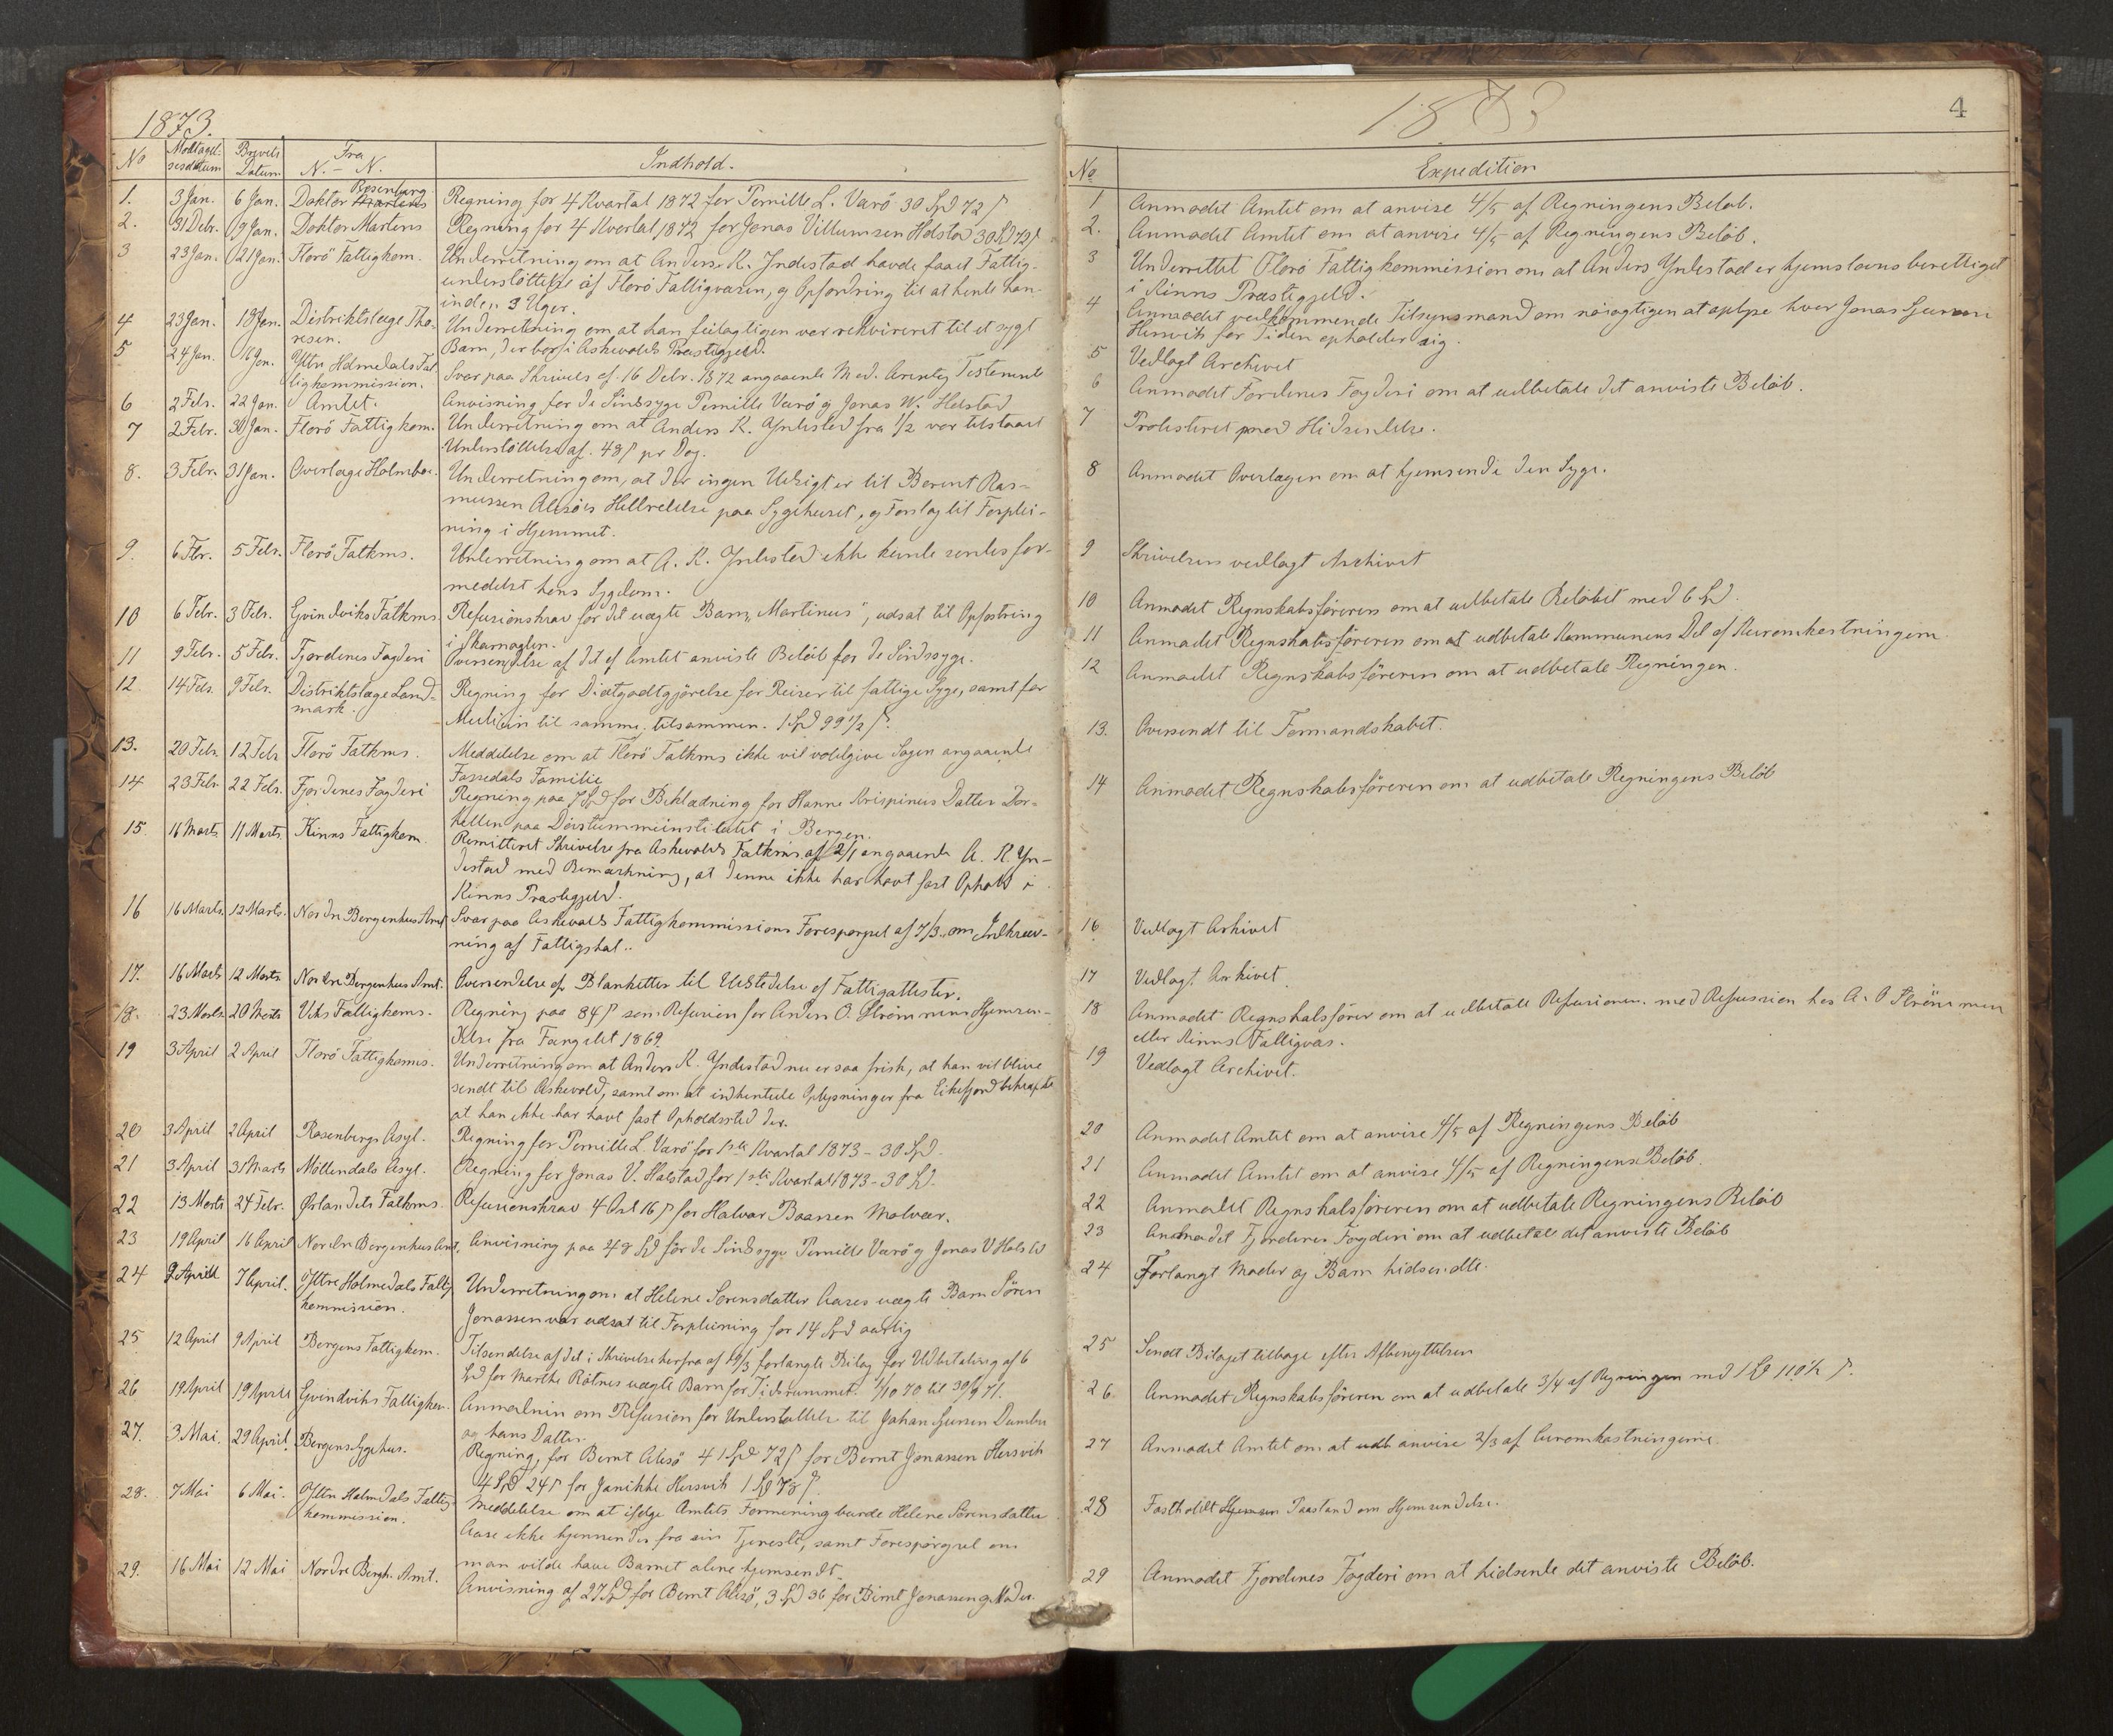 1873.
No Modtagel- Brevets Fra Indhold.
sesdatum Datum N. - N.
Rosenberg
1. 3 Jan. 6 Jan. Doktor Martens Regning for 4 Kvartal 1872 for Pernille L. Varö 30 Spd 72 ß
2. 31 Debr. 9 Jan. Doktor Martens Regning for 4 Kvartal 1872 for Jonas Villumsen Holstad 30 Spd 72 ß
3 23 Jan. 21 Jan. Florö Fattigkom. Underretning om at Anders K. Indestad havde faaet Fattig-
understöttelse af Florö Fattigvæsen, og Opfordring til at hente ham
inden 3 Uger.
4 23 Jan. 18 Jan. Distriktslæge Tho- Underretning om at han feilagtigen var rekvireret til et sygt
resen. Barn, der bor i Askevolds Præstegjeld.
5 24 Jan. Jan. Yttre Holmedals Fat- Svar paa Skrivels af 16 Debr. 1872 angaaende Mad.
tigkommission.
6 2 Febr. 22 Jan. Amtet. Anvisning for de Sindsyge Pernille Varö og Jonas W. Holstad
7 2 Febr. 30 Jan. Florö Fattigkom. Underretning om at Anders K. Yndestad fra 1/2 var tilstaaet
Understöttelse af 48 ß pr Dag.
8. 3 Febr. 31 Jan. Overlæge Holmboe. Underretning om, at der ingen Udsigt er til Berent Ras-
mussen Alsöis Helbredelse paa Sygehuset, og Forslag til Forplei-
ning i Hjemmet.
9. 6 Fbr. 5 Febr. Florö Fatkms. Underretning om at A. K. Yndestad ikke kunde sendes for-
medelst hans Sygdom.
10 6 Febr. 3 Febr. Evindviks Fatkms. Refusionskrav for det uægte Barn "Martinus", udsat til Opfostring
i
11 9 Febr. 5 Febr. Fjordenes Fogderi Oversendelse af det af Amtet anviste Belöb for de Sindssyge.
12 14 Febr. 9 Febr. Distriktslæge Land- Regning for Diætgodtgjörelse for Reiser til fattige Syge, samt for
mark. Medicin til samme, tilsammen. 1 Spd 99 1/2 ß.
13. 20 Febr. 12 Febr. Florö Fatkms. Meddelelse om at Florö Fatkms ikke vil voldgive Sagen angaaende
Familie
14 23 Febr. 22 Febr. Fjordenes Fogderi Regning paa 7 Spd for Beklædning for Hanne Krispinus Datter
paa Dövstummeinstitutet i Bergen.
15. 16 Marts. 11 Marts. Kinns Fattigkom. Remitteret Skrivelse fra Askevolds Fatkms. af 2/1 angaaende A. K. Yn-
destad med Bemærkning, at denne ikke har havt fast Ophold i
Kinns Præstegjeld.
16 16 Marts. 12 Marts. Nordre Bergenhus Amt Svar paa Askevolds Fattigkommissions Forespørgsel af 7/3 om Indkræv-
ning af Fattigskat.
17. 16 Marts 12 Marts. Nordre Bergenhus Amt. Oversendelse af Blanketter til Udstedelse af Fattigattester.
18. 23 Marts 20 Marts Viks Fattigkoms. Regning paa 84 ß som Refusion for Anders O. Strömmens Hjemsen-
delse fra Fængslet 1869.
19 3 April 2 April Florö Fattigkomis. Underretning om at Anders K. Yndestad nu er saa frisk, at han vil blive
sendt til Askevold, samt om at indhentede Oplysninger fra Eikefjord bekræfte
at han ikke har havt fast Opholdssted der.
20 3 April 2 April Rosenbergs Asyl. Regning for Pernille L. Varö for 1ste Kvartal 1873 - 30 Spd.
21 3 April 31 Marts Möllendals Asyl. Regning for Jonas V. Holstad for 1ste Kvartal 1873 - 30 Spd.
22 13 Marts 24 Febr. Ørlandets Fatkms. Refusionskrav 4 Ort 16 ß for Halvor Baarsen Molvær.
23 19 April 16 April Nordre Bergenhus Amt, Anvisning paa 48 Spd för de Sindssyge Pernille Varö og Jonas V Holstd
24 9 April 7 April. Yttre Holmedals Fattig Underretning om at Helene Sørensdatter Aases uægte Barn Sören
kommission. Jonassen var udsat til Forpleining for 14 Spd aarlig
25 12 April 9 April Bergens Fattigkom. Tilsendelse af det i Skrivelse herfra af 19/3 forlangte Bilag for Udbetaling af 6
Spd for Marthe Rötnes uægte Barn for Tidsrummet 1/10 70 til 30/9 71.
26 19 April 19 April Evindviks Fattigkom. Anmodnin om Refusion for Understöttelse til Johan
og hans Datter.
27. 3 Mai. 29 April. Bergens Sygehus. Regning, for Bernt Alsö 41 Spd 72 ß for Bernt Jonassen Hersvik
4 Spd 24 ß for Janikke Hersvik 1 Spd 78 ß.
28. 7 Mai 6 Mai. Yttre Holmedals Fattig- Meddelelse om at ifølge Amtets Formening burde Helene Sörensdatter
kommission. Aase ikke hjemsendes fra sin Tjeneste, samt Forespørgsel om
man vilde have Barnet alene hjemsendt.
29. 16 Mai 12 Mai Nordre Bergh. Amt. Anvisning af 27 Spd for Bernt Alsö, 3 Spd 36 for Bernt Jonassen og Moder.
1873
4
No Expedition
1 Anmodet Amtet om at anvise 4/5 af Regningens Beløb.
2. Anmodet Amtet om at anvise 4/5 af Regningens Belöb.
3 Underrettet Florö Fattigkommission om at Anders Yndestad er hjemstavnsberettiget
i Kinns Præstegjeld.
4 Anmodet vedkommende Tilsynsmand om nöiagtigen at oplyse hvor Jonas
for Tiden opholder sig.
5 Vedlagt Archivet
6 Anmodet Fordenes Fogderi om at udbetale det anviste Belöb.
7 Protesteret mod Hidsendelse.
8 Anmodet Overlægen om at hjemsende den Syge.
9 Skrivelsen vedlagt Archivet
10 Anmodet Regnskabsföreren om at udbetale Belöbet med 6 Spd.
11 Anmodet Regnskabsföreren om at udbetale Kommunens Del af Kuromkostningern
12 Anmodet Regnskabsföreren om at udbetale Regningen.
13. Oversendt til Formandskabet.
14 Anmodet Regnskabsföreren om at udbetale Regningens Belöb
16 Vedlagt Arkivet
17 Vedlagt Arkivet.
18 Anmodet Regnskabsförer om at udbetale Refusionen med Refussion hos A. O Strömmen
eller Kinns Fattigvæs.
19 Vedlagt Archivet.
20 Anmodet Amtet om at anvise 4/5 af Regningens Belöb
21 Anmodet Amtet om at anvise 4/5 af Regningens Belöb.
22 Anmodet Regnskabsföreren om at udbetale Regningens Belöb
23 Anmodet Fjordenes Fogderi om at udbetale det anviste Belöb
24 Forlangt Moder og Barn hidsendte.
25 Sendt Bilaget tilbage efter Afbenyttelsen
26. Anmodet Regnskabsföreren om at udbetale 3/4 af Regningen med 1 Spd 110 1/2 ß.
27 Anmodet Amtet om at udb anvise 2/3 af Curomkostningerne.
28 Fastholdt Hjemsen Paastand om Hjemsendelse.
29 Anmodet Fjordenes Fogderi om at hidsende det anviste Belöb.